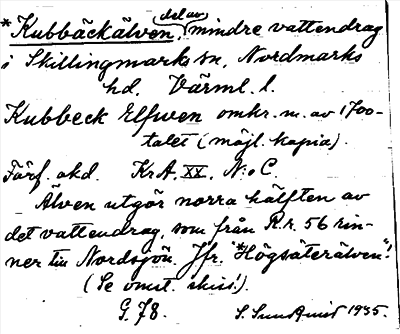 *Kubbäckälven, del av mindre vattendrag
i Skillingmarks sn, Nordmarks
hd. Värml. l.
Kubbeck Elfwen omkr. m. av 1700-
talet (möjl. kopia).
Färf. akd. KrA. XX. N:o C.
Älven utgör norra hälften av
det vattendrag, som från R.r. 56 rin-
ner till Nordsjön. Jfr. "*Högsäterälven"!
(Se omst. skiss!).
G. 78. S. Sundqvist 1935.